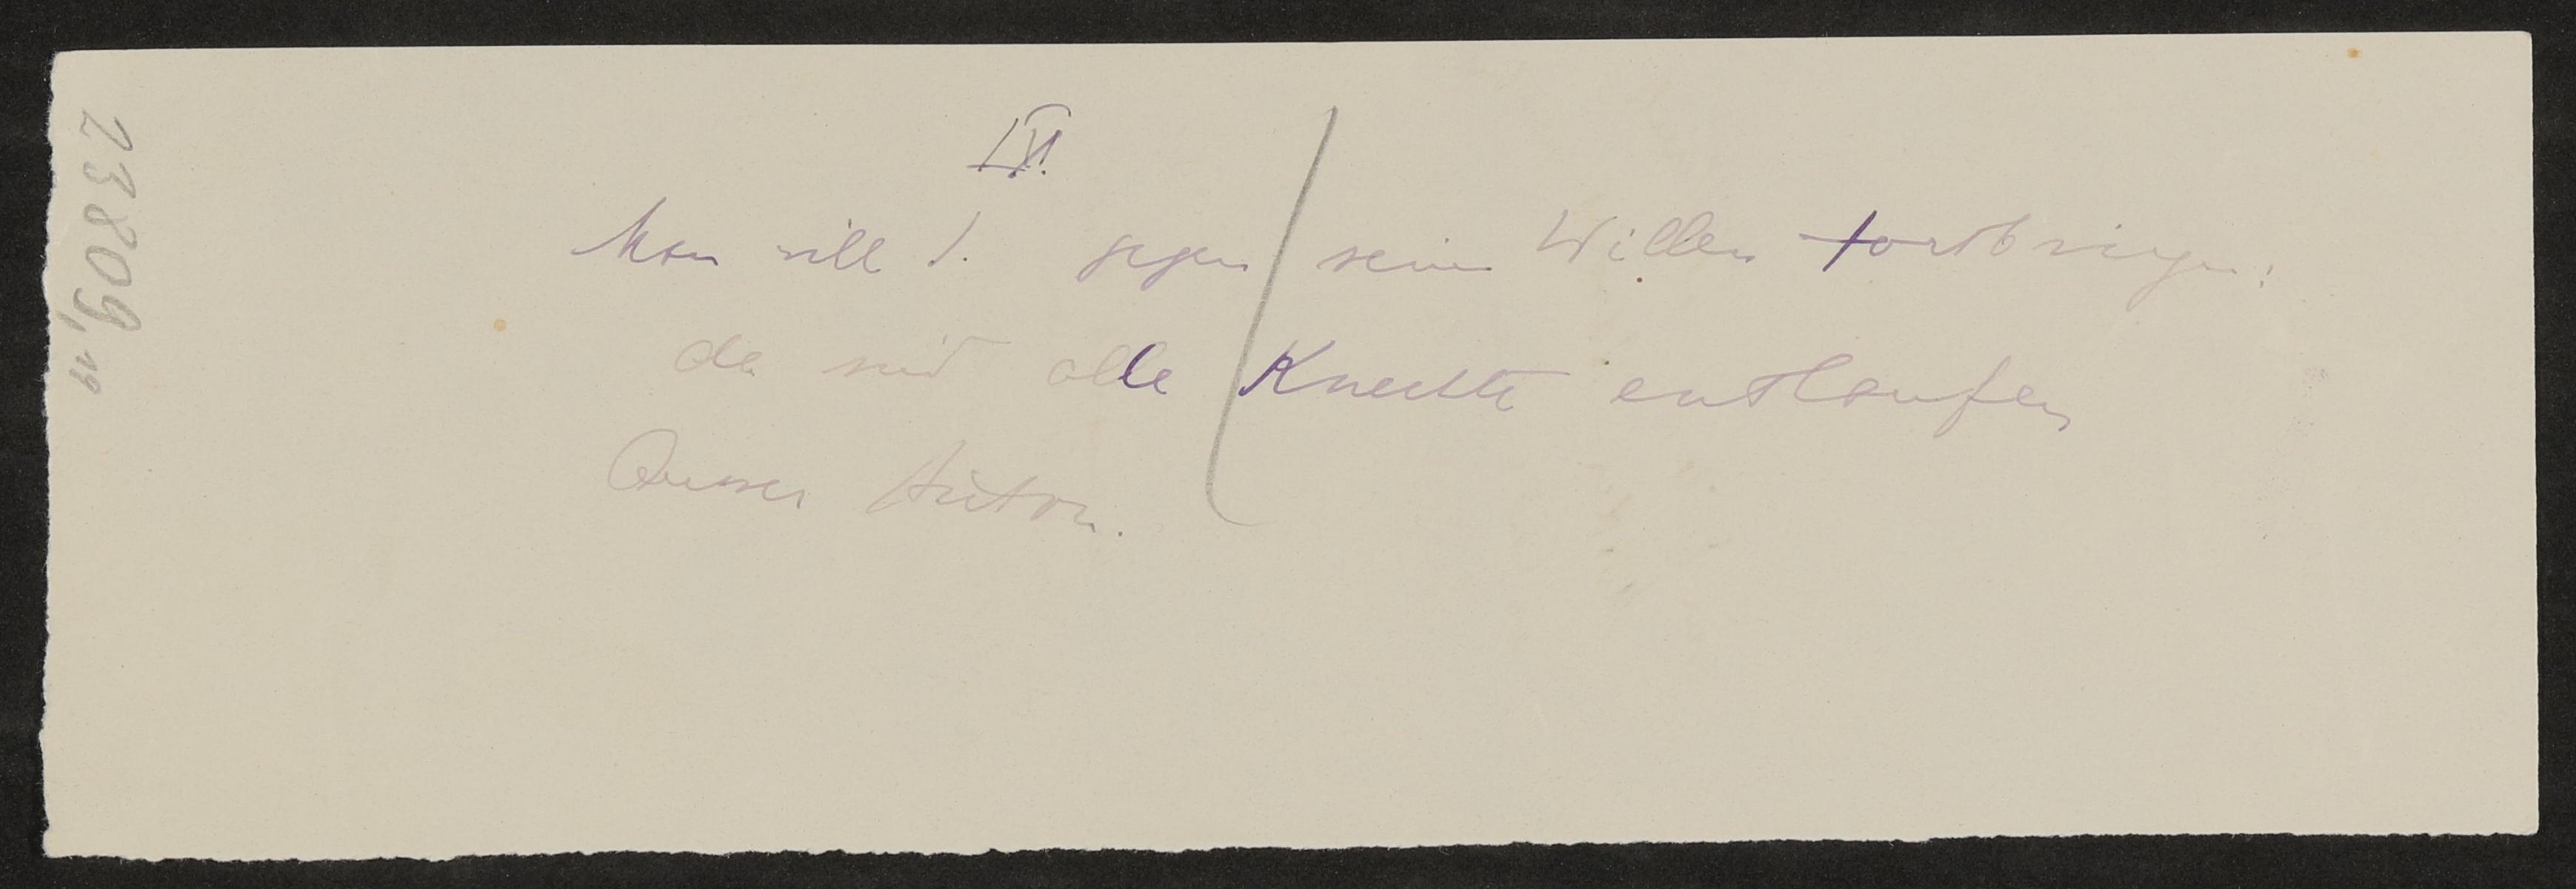 IV.
Man will J. gegen seinen Willen fortbringen:
da sind alle Knechte entlaufen
Ausser Anton.
23809,19